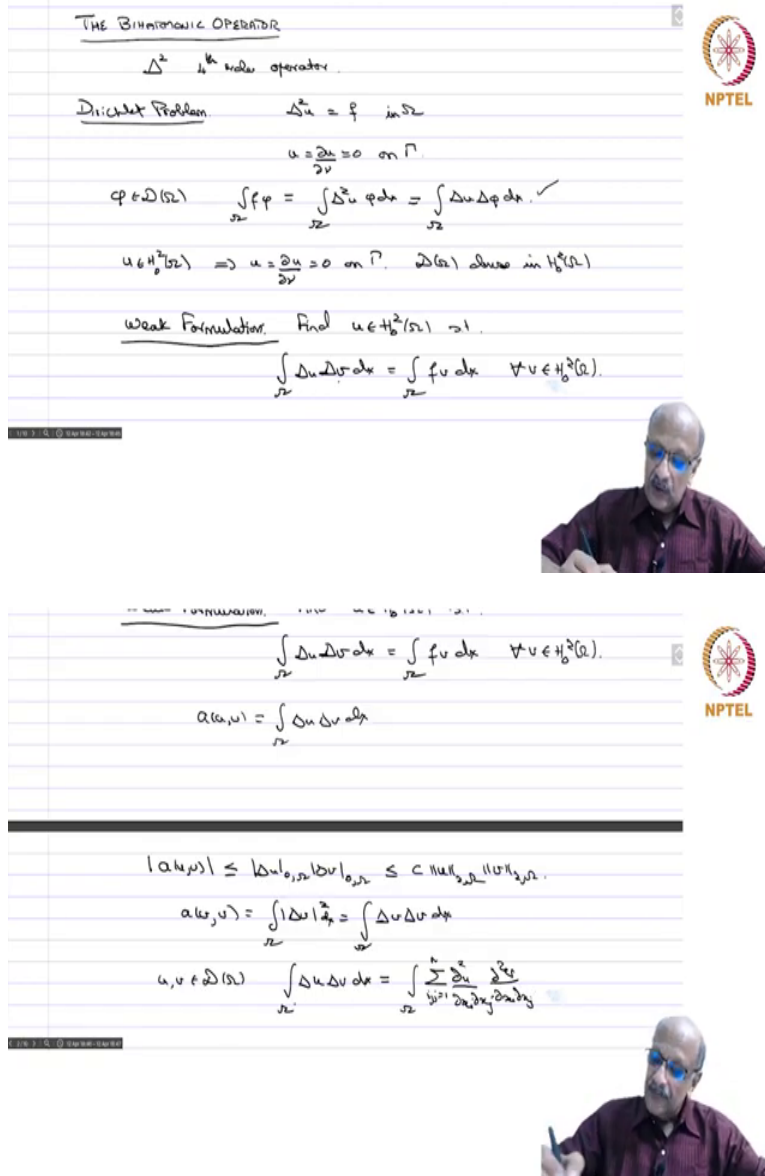 THE BIHARMONIC OPERATOR
Δ² 4th order operator.
NPTEL
Dirichlet Problem. Δ²u = f in Ω
u = ∂u/∂ν = 0 on Γ.
φ ∈ D(Ω) ∫_Ω fφ = ∫_Ω Δ²u φ dx = ∫_Ω Δu Δφ dx. ✓
u ∈ H₀²(Ω) ⇒ u = ∂u/∂ν = 0 on Γ. D(Ω) dense in H₀²(Ω)
Weak Formulation. Find u ∈ H₀²(Ω) s.t.
∫_Ω Δu Δv dx = ∫_Ω fv dx ∀ v ∈ H₀²(Ω).
∫_Ω Δu Δv dx = ∫_Ω fv dx ∀ v ∈ H₀²(Ω).
NPTEL
a(u,v) = ∫_Ω Δu Δv dx
|a(u,v)| ≤ |Δu|₀,Ω |Δv|₀,Ω ≤ C ‖u‖₂,Ω ‖v‖₂,Ω.
a(v,v) = ∫_Ω |Δv|² dx = ∫_Ω Δv Δv dx
u,v ∈ D(Ω) ∫_Ω Δu Δv dx = ∫_Ω Σ_{i,j=1}^n ∂²u/∂x_i∂x_j ∂²v/∂x_i∂x_j